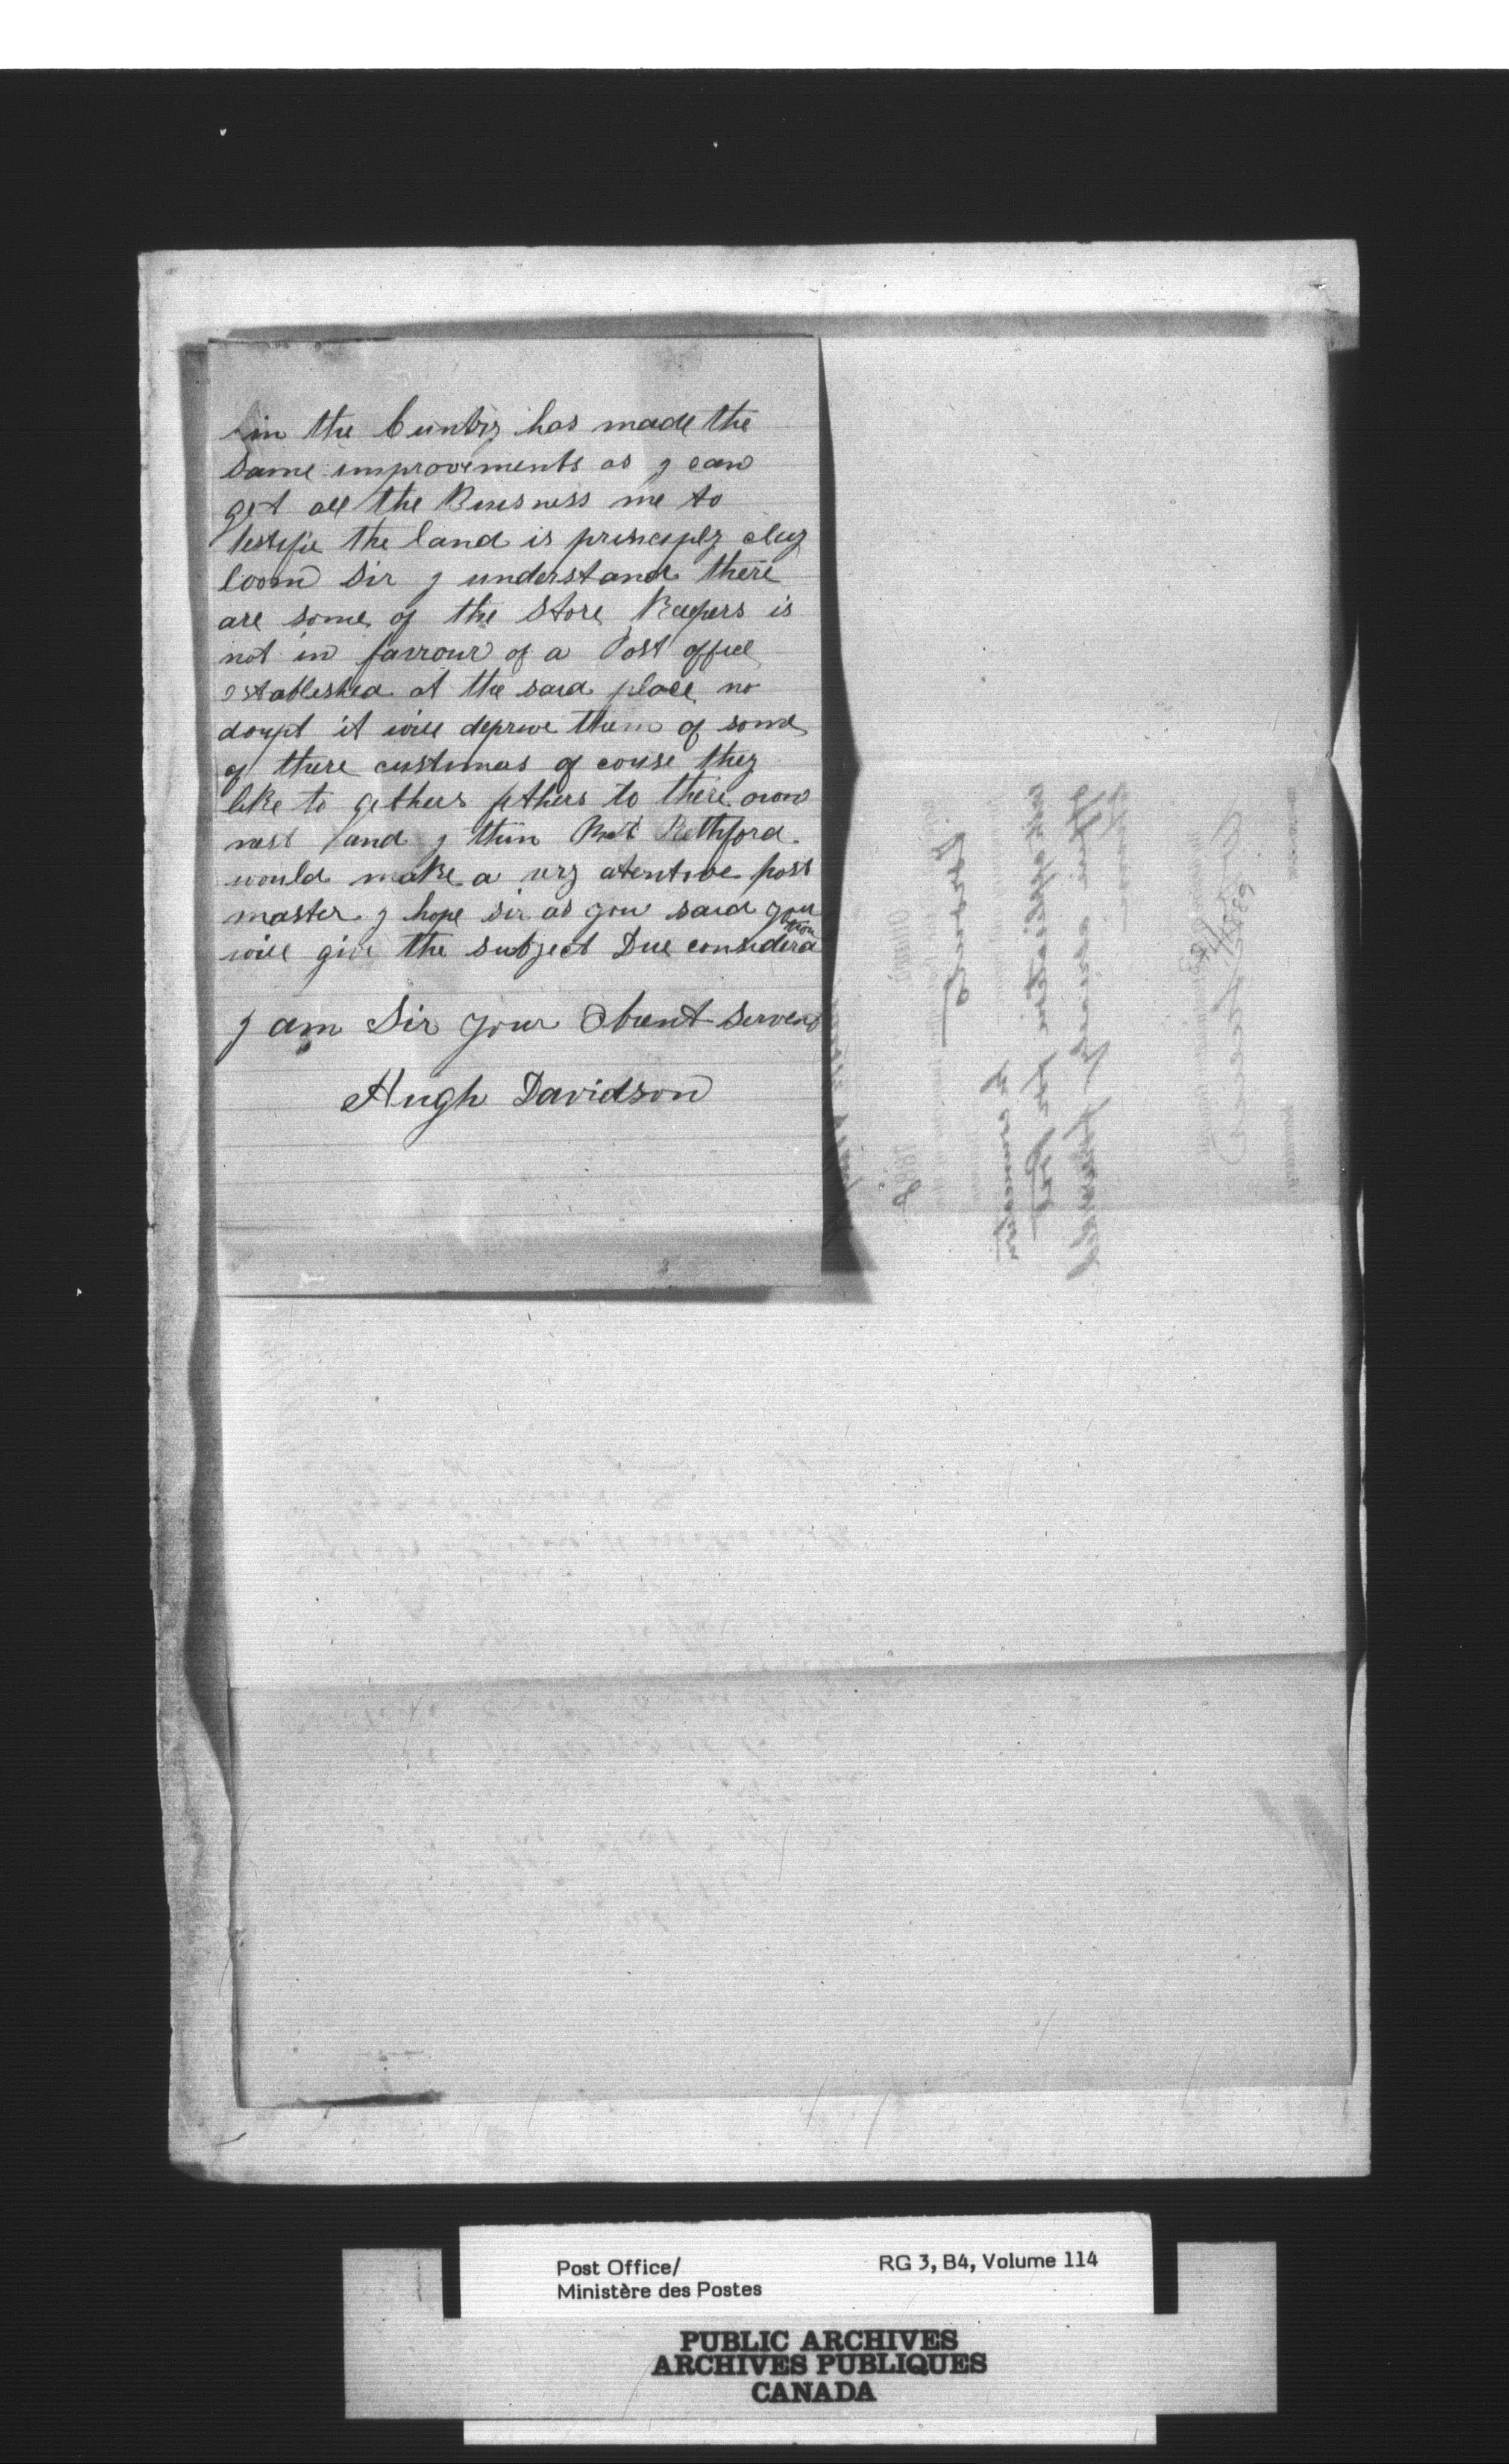 in the Cuntry has made the
same improvements as I can
get all the Buisness me to
testifie the land is principly clay
loom Sir I understand there
are some of the Store Keepers is
not in favrour of a Post office
established at the said place no
doupt it will deprive them of some
of there custumas of couse they
like to gethers fethers to there own
nest and I thin Rethford
would make a very atentive post
master I hope sir as you said you
will give the subject Due consideration
I am Sir your Obent Servend
Hugh Davidson
Post Office/
Ministère des Postes
RG 3, B4, Volume 114
PUBLIC ARCHIVES
ARCHIVES PUBLIQUES
CANADA